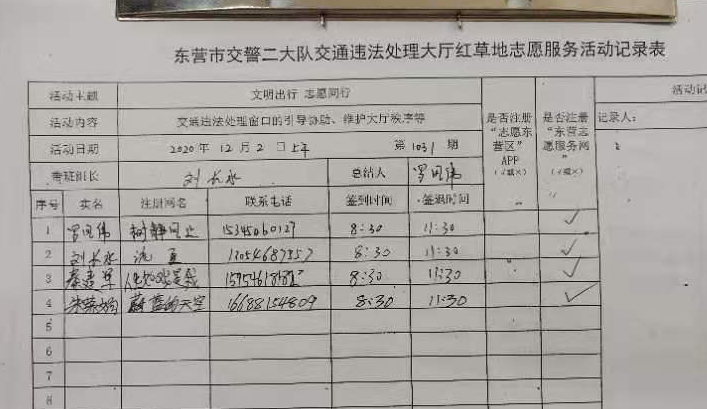 东营市交警二大队交通违法处理大厅红草地志愿服务活动记录表
活动主题 文明出行 志愿同行
活动内容 交通违法处理窗口的引导协助、维护大厅秩序等
活动日期 2020年12月2日上午 第1031期
考班组长 刘长水 总结人 罗同伟
是否注册“志愿东营区”APP（√或×）
是否注册“东营志愿服务网”（√或×）
活动记
记录人：
序号 实名 注册网名 联系电话 签到时间 签退时间
1 罗同伟 树静风止 15345460127 8:30 11:30 √
2 刘长水 8:30 11:30 √
3 8:30 11:30 √
4 蔚蓝的天空 16688154809 8:30 11:30 √
5
6
7
8